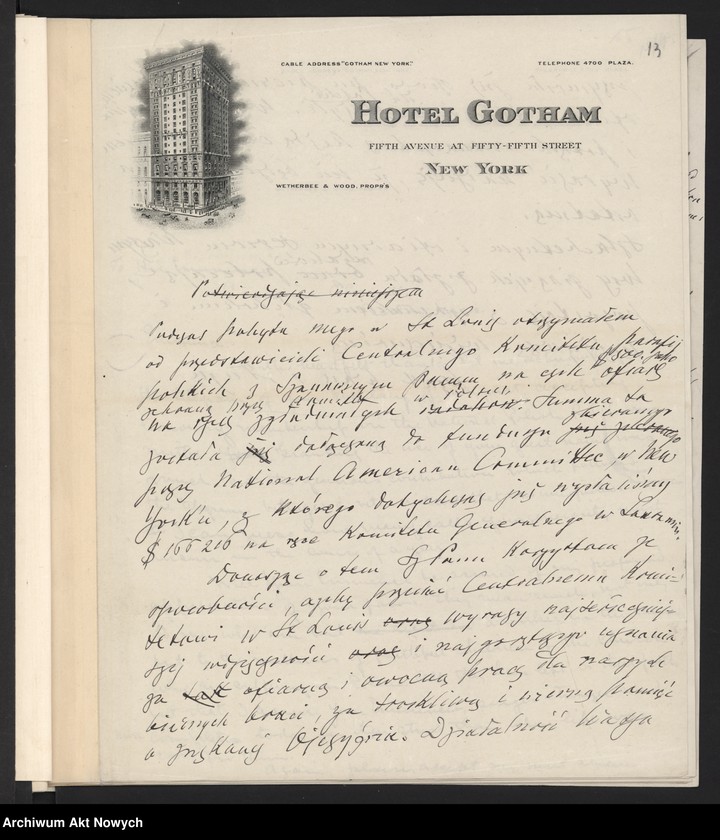 13
CABLE ADDRESS "GOTHAM NEW YORK."
TELEPHONE 4700 PLAZA.
HOTEL GOTHAM
FIFTH AVENUE AT FIFTY-FIFTH STREET
NEW YORK
WETHERBEE & WOOD. PROPR'S
Potwierdzając niniejszem
Podczas pobytu mego w St Louis otrzymałem
od przedstawicieli Centralnego Komitetu
polskich z Szanownym Panem na czele
zebraną przez Komitet w Polsce
na rzecz rodakow. Summa ta
została już dołączoną do funduszu zbieranego
przez National American Committee w New
Yorku, z którego dotychczas już wysłaliśmy
$ 166 216 na ręce Komitetu Generalnego w Lausannie.
Donosząc o tem Sz Panu korzystam ze
sposobności, ażeby przesłać Centralnemu Komi-
tetowi w St Louis oraz wyrazy najserdeczniej-
szej wdzięczności oraz i najgorętszego uznania
za tak ofiarną i owocną pracę dla naszych
biednych braci, za troskliwą i wierną pamięć
o znękanej Ojczyźnie. Działalność Wasza
Archiwum Akt Nowych